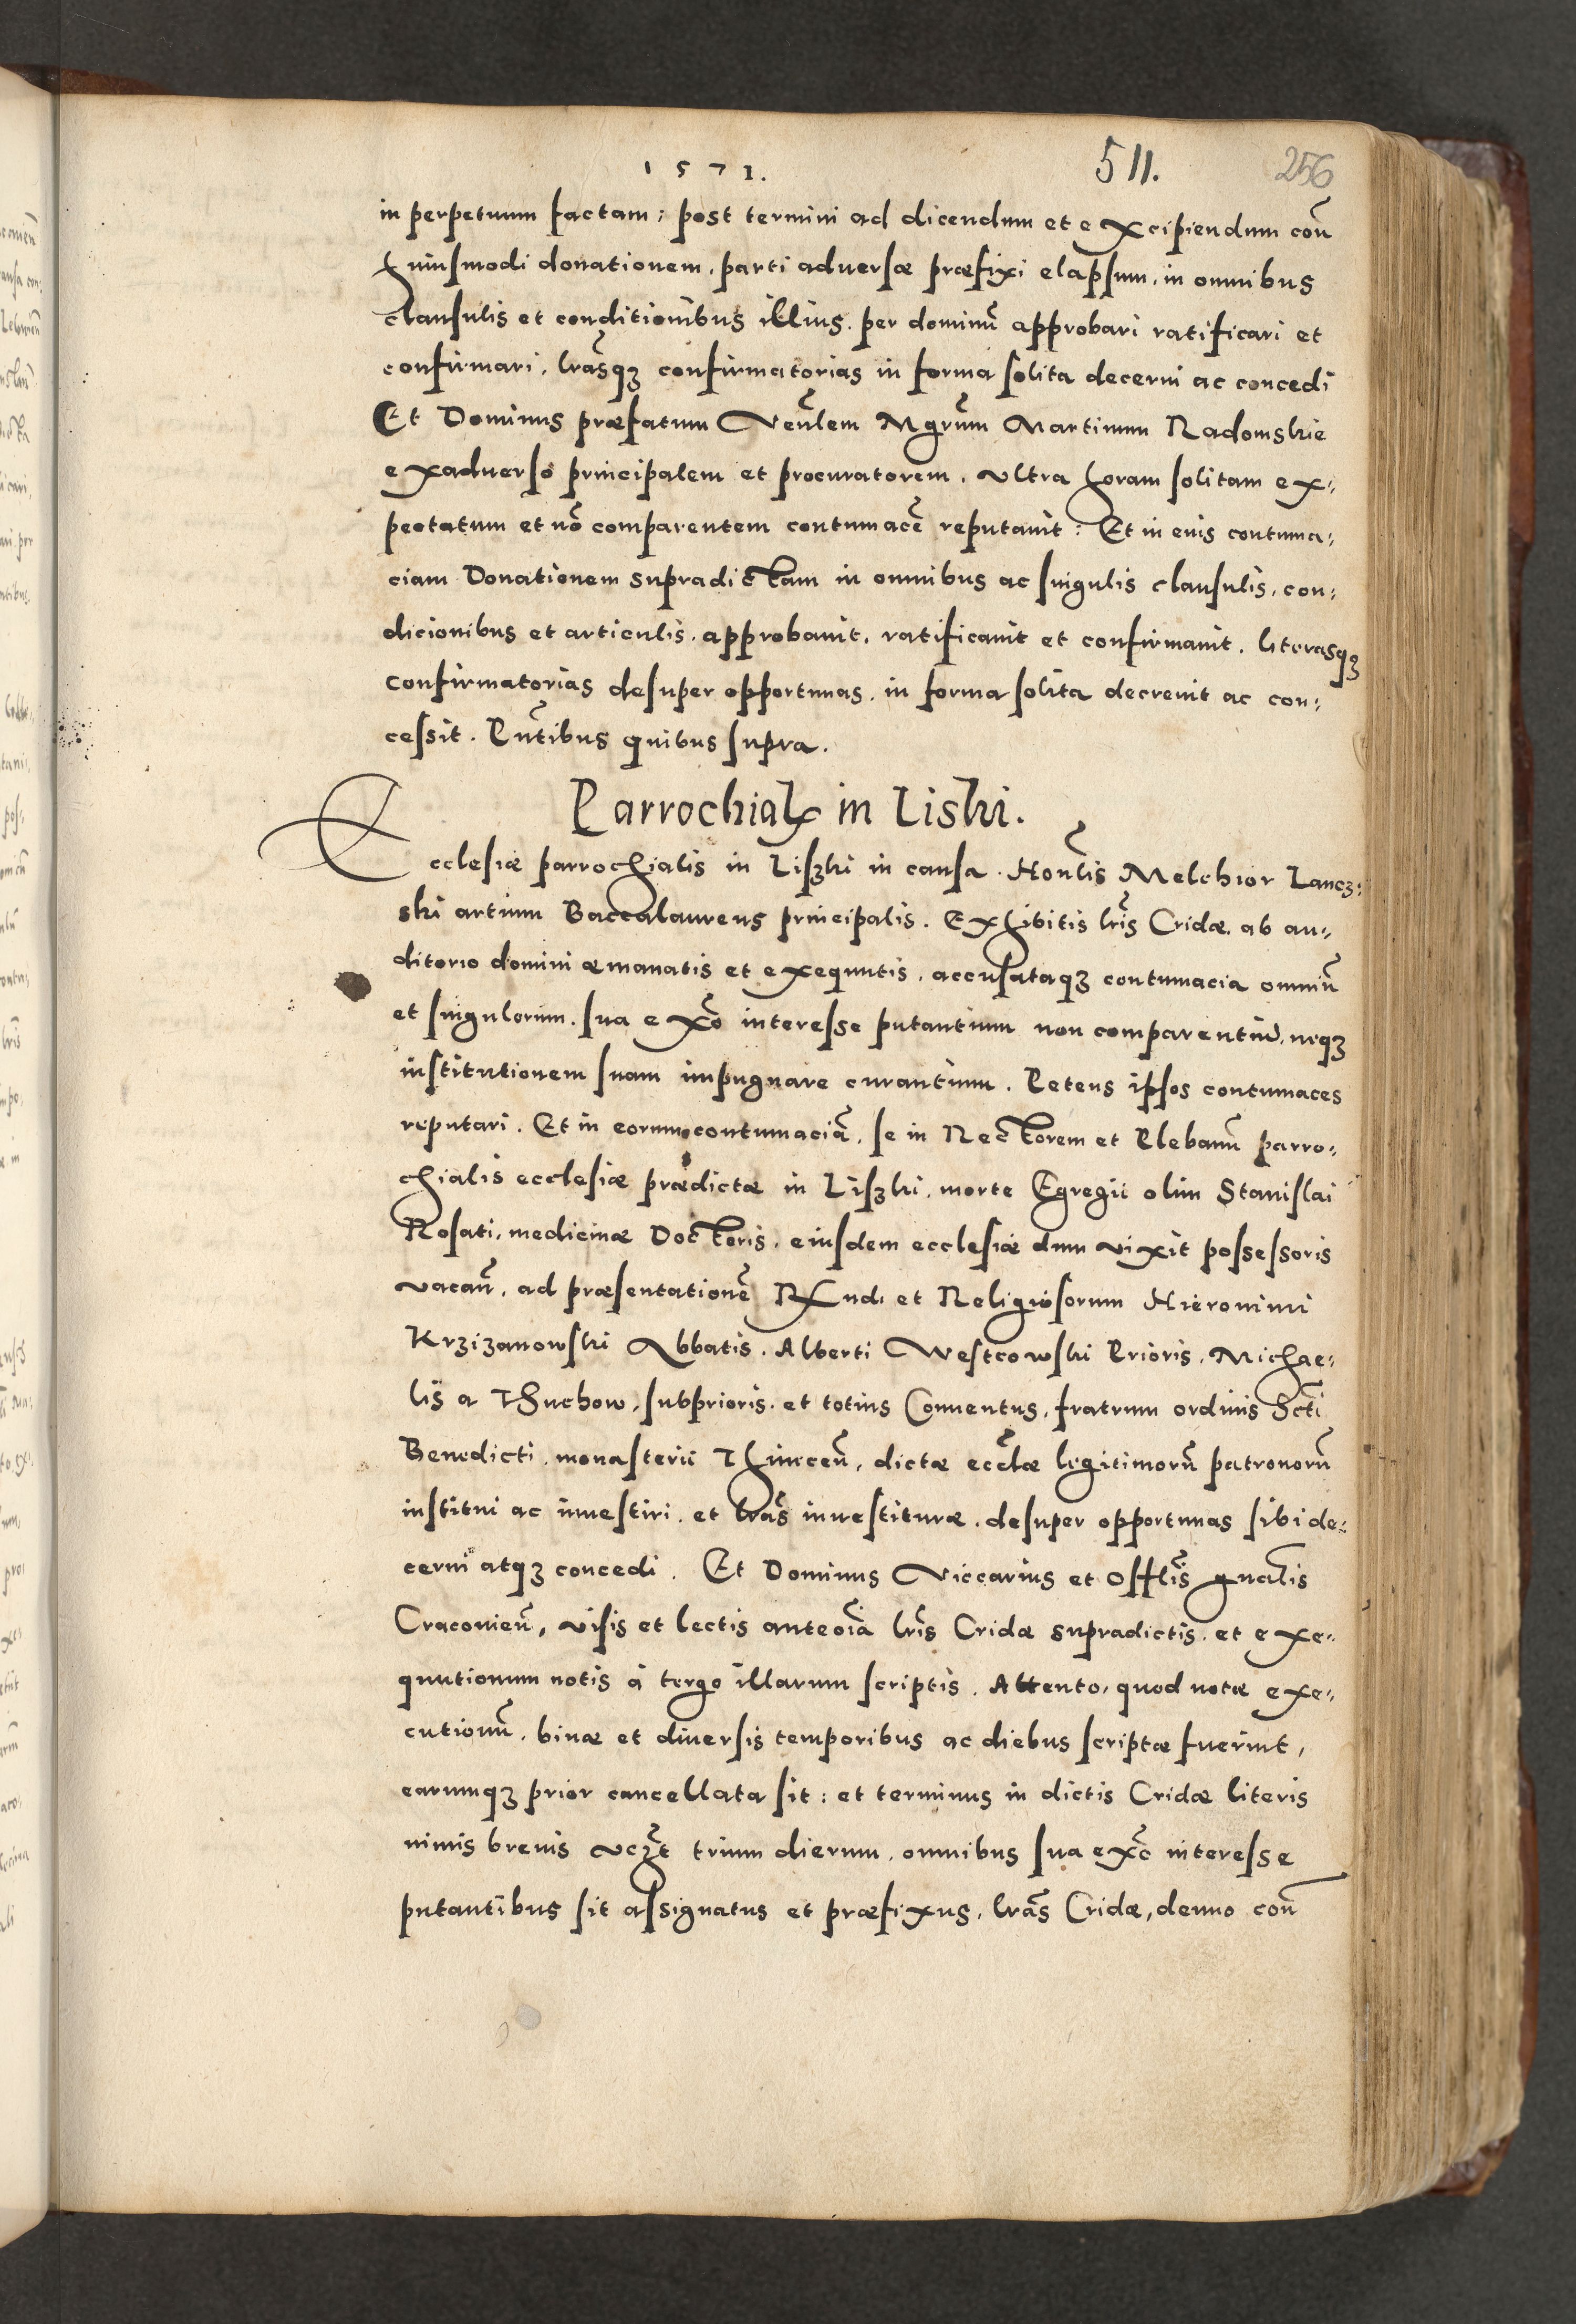 1571. 511. 256
in perpetuum factam: post termini ad dicendum et excipiendum coñ
huiusmodi donationem, parti aduersæ præfixi elapsum, in omnibus
clausulis et conditionibus illius. per dominũ approbari ratificari et
confirmari, lr̃asqʒ confirmatorias in forma solita decerni ac concedi
Et Dominus præfatum Veñlem Mgr̃um Martinum Radomskie
exaduerso principalem et procuratorem, vltra horam solitam ex-
pectatum et nõ comparentem contumacẽ reputauit: Et in eius contuma-
ciam Donationem supradictam in omnibus ac singulis clausulis, con-
dicionibus et articulis, approbauit, ratificauit et confirmauit. literasqʒ
confirmatorias desuper opportunas, in forma solita decreuit ac con-
cessit. Pñtibus quibus supra.
Parrochialis in Liski.
Ecclesiæ parrochialis in Liszki in causa. Honlĩs Melchior Lancz-
ski artium Baccalaureus principalis. Exhibitis lr̃is Cridæ, ab au-
ditorio domini emanatis et exequutis, accusataqʒ contumacia omniũ
et singulorum, sua exõ interesse putantium non comparentiũ, neqʒ
institutionem suam impugnare curantium. Petens ipsos contumaces
reputari. Et in eorum contumaciã, se in Rectorem et Plebanũ parro-
chialis ecclesiæ prædictæ in Liszki, morte Egregii olim Stanislai
Rosati, medicinæ Doctoris, eiusdem ecclesiæ dum vixit possessoris
vacañ, ad præsentationẽ Rndi et Religiosorum Hieronimi
Krzizanowski Abbatis, Alberti Westcowski Prioris, Michae-
lis a Thuchow, subprioris, et totius Conuentus, fratrum ordinis Scti
Benedicti, monasterii Thinceñ, dictæ eccl̃æ legitimorũ patronorũ
institui ac inuestiri, et lr̃as inuestituræ, desuper opportunas sibi de-
cerni atqʒ concedi. Et Dominus Viccarius et Offlĩs gnalis
Cracouieñ, visis et lectis anteoĩa lr̃is Cridæ supradictis, et exe-
quutionum notis à tergo illarum scriptis. Attento, quod notæ exe-
cutionũ, binæ et diuersis temporibus ac diebus scriptæ fuerint,
earumqʒ prior cancellata sit: et terminus in dictis Cridæ literis
nimis breuis vczt trium dierum, omnibus sua exõ interesse
putantibus sit assignatus et præfixus, lr̃as Cridæ, denuo coñ